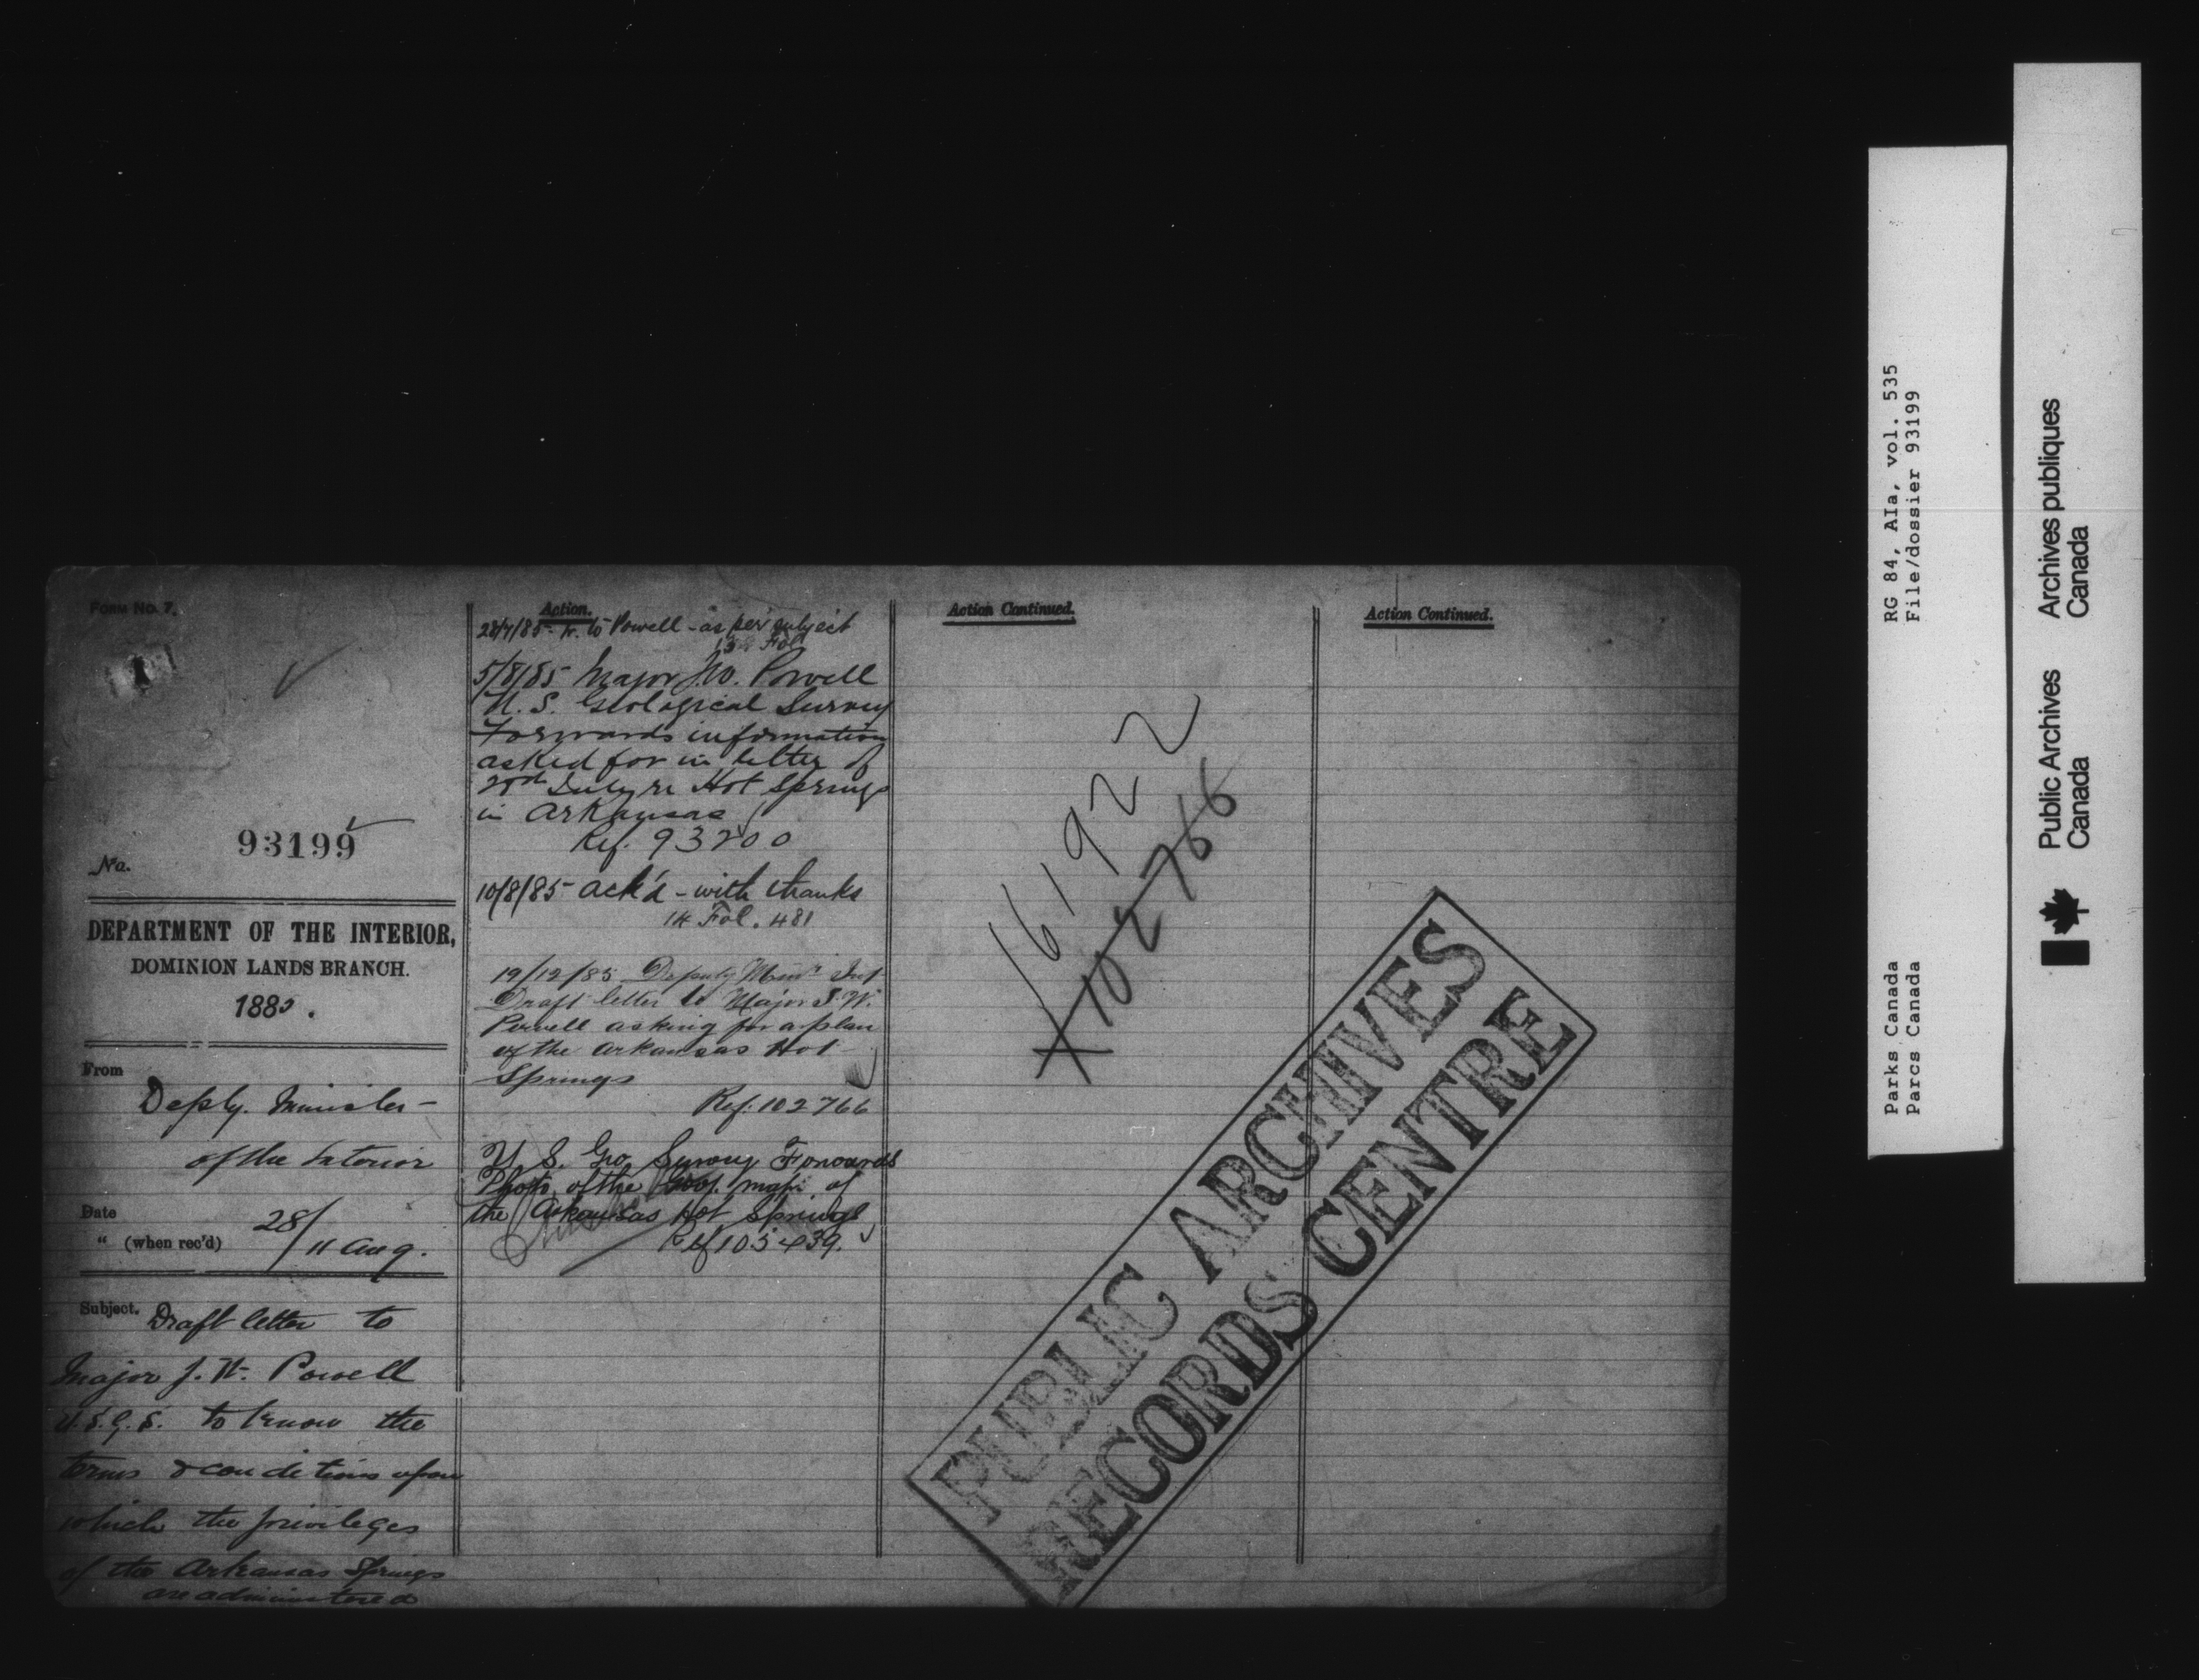 Form No. 7.
1
No. 93199
DEPARTMENT OF THE INTERIOR,
DOMINION LANDS BRANCH.
1885.
From
Deputy Minister
of the Interior
Date 28/
" (when rec'd) 11 Aug.
Subject. Draft letter to
Major J. W. Powell
U.S.G.S. to know the
terms & conditions upon
which the privileges
of the Arkansas Springs
are administered
Action.
28/7/85 - to Powell - as per subject
13 Fol
5/8/85 Major J.W. Powell
U. S. Geological Survey
Forwards information
asked for in letter of
July re Hot Springs
in Arkansas
Ref. 93200
10/8/85 ack'd - with thanks
14 Fol. 481
19/12/85 Deputy Minr Int
Draft letter to Major J. W.
Powell asking for a plan
of the Arkansas Hot
Springs
Ref: 102766
U S. Geo Survey Forwards
Photo of the map of
the Arkansas Hot Springs
Ref 105439.
Action Continued.
161922
102766
Action Continued.
PUBLIC ARCHIVES
RECORDS CENTRE
Parks Canada RG 84, AIa, vol. 535
Parcs Canada File/dossier 93199
Public Archives Archives publiques
Canada Canada